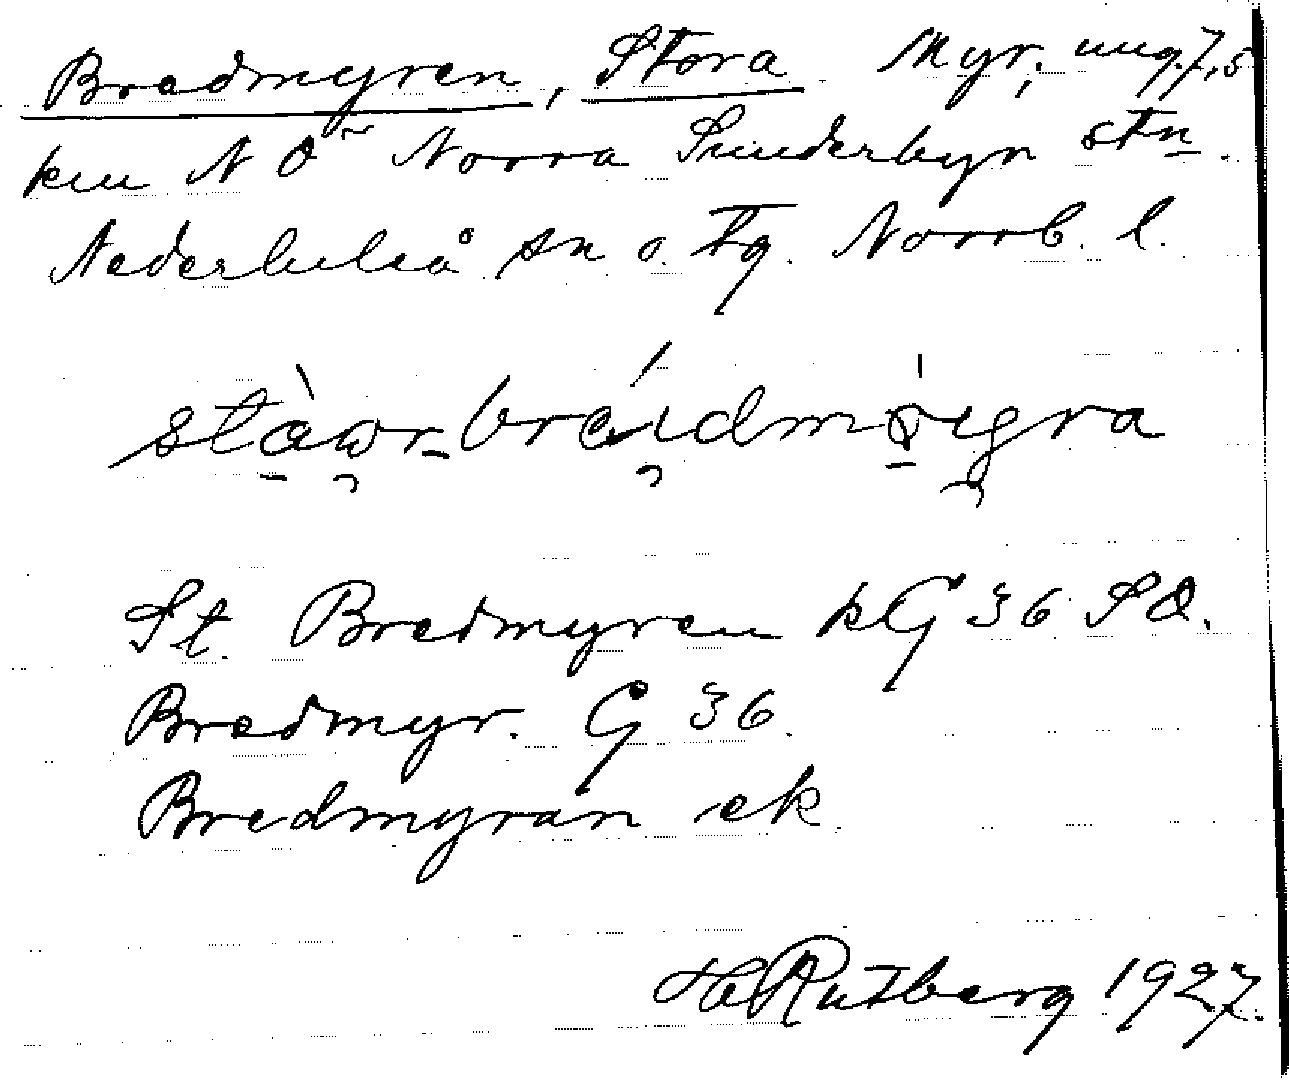 Bredmyren, Stora Myr, ung. 7,5
km N O~ Norra Sunderbyn stn.
Nederluleå sn o. tg. Norrb. l.
St. Bredmyren kG 36 SO.
Bredmyr. G 36.
Bredmyran ek.
H Rutberg 1927.